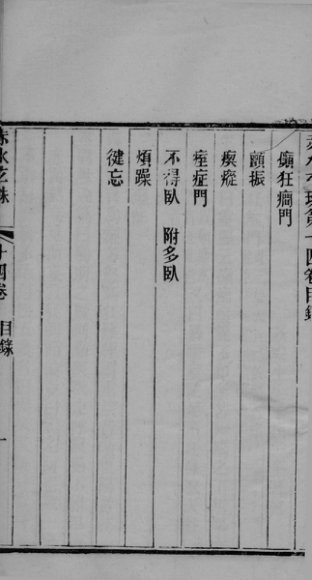 赤水玄珠第十四卷目錄
癲狂癇門
顫振
瘈瘲
痙症門
不得臥　附多臥
煩躁
健忘
赤水玄珠　十四卷　目錄　一